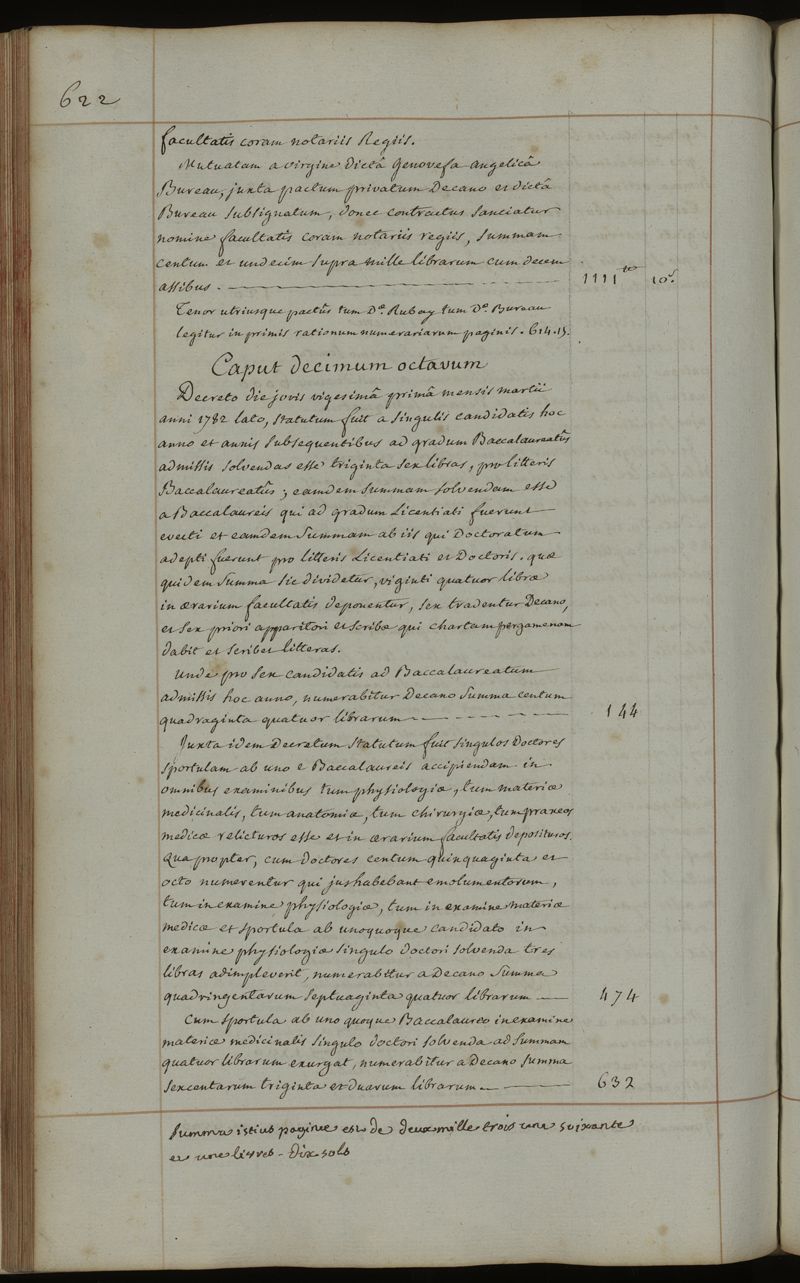 622
facultatis coram notariis Regiis.
Mutuatam a virgine dictâ Genovefa angelicâ
Bureau, juxta pactum privatum Decano et dictâ
Bureau subsignatum, donec contractus sanciatur
nomine facultatis coram notariis regiis, summam
centum et undecim supra mille librarum cum decem
assibus. 1111 tt 10 s.
Tenor utriusque pactûs tum De. Rubay tum De. Bureau
legitur in primis rationum numerariarum paginis. 614. 15.
Caput decimum octavum
Decreto die jovis vigesimâ primâ mensis martii
anni 1782 lato, statutum fuit a singulis candidatis hoc
anno et annis subsequentibus ad gradum Baccalaureatûs
admissis solvendas esse triginta sex libras, pro litteris
Baccalaureatûs; eamdem summam solvendam esse
a Baccalaureis qui ad gradum Licentiati fuerunt
evecti et eamdem summam ab iis qui Doctoratum
adepti fuerunt pro litteris Licentiati et Doctoris. quæ
quidem summa sic dividetur, viginti quatuor libræ
in ærarium facultatis deponentur, sex tradentur Decano,
et sex priori apparitori et scribæ qui chartam pergamenam
dabit et scribet litteras.
Unde pro sex candidatis ad Baccalaureatum
admissis hoc anno, numerabitur Decano summa centum
quadraginta quatuor librarum 144
Juxta idem Decretum statutum fuit singulos Doctores
sportulam ab uno e Baccalaureis accipiendam in
omnibus examinibus tum physiologiæ, tum materiæ
medicinalis, tum anatomiæ, tum chirurgiæ, tum praxeos
medicæ relicturos esse et in ærarium facultatis deposituros.
Quapropter, cum doctores centum quinquaginta et
octo numerentur qui jus habebant emolumentorum,
tum in examine physiologiæ, tum in examine materiæ
medicæ et sportula ab unoquoque candidato in
examine physiologiæ singulo doctori solvenda tres
libras adimpleverit, numerabitur a Decano summa
quadringentarum septuaginta quatuor librarum 474
Cum sportula ab uno quoque Baccalaureo in examine
materiæ medicinalis singulo doctori solvenda ad summam
quatuor librarum exurgat, numerabitur a Decano summa
sexcentarum triginta et duarum librarum 632
Summa istius paginæ est de deux mille trois cent soixante
et une livres - dix sols